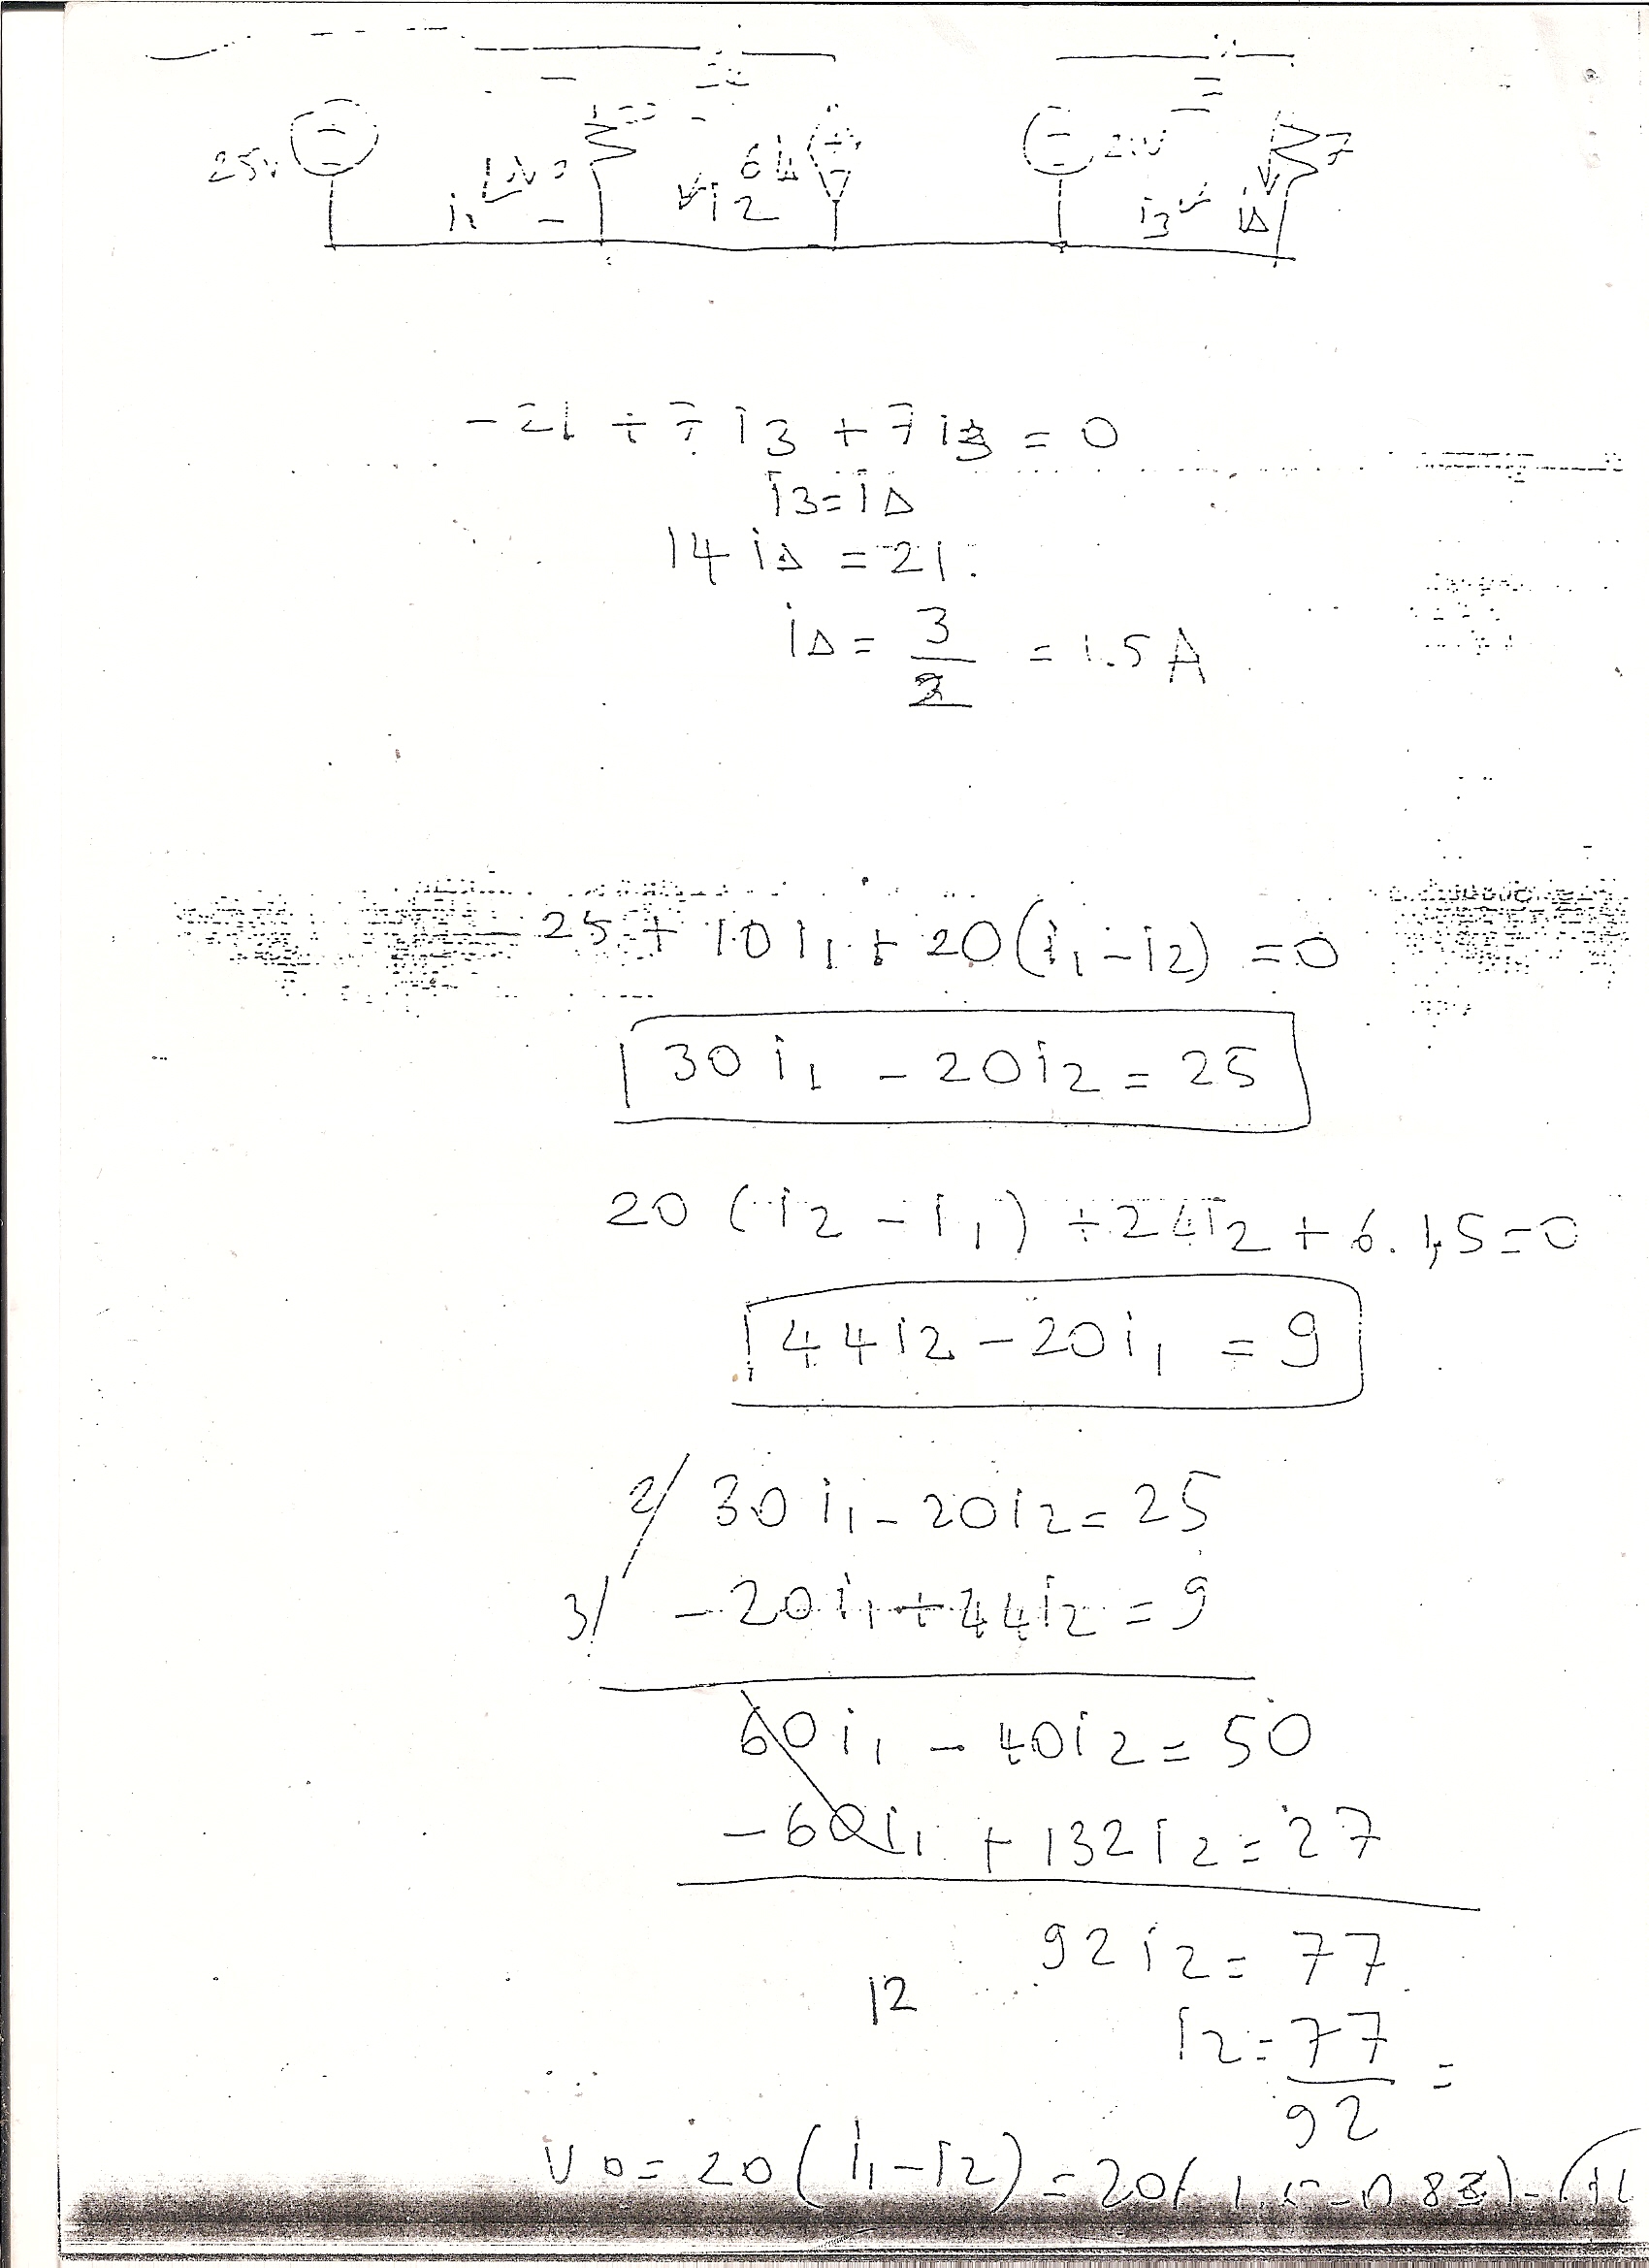 25v i1 i2 6i∆ 21V i3 i∆ 7
-21 + 7 i3 + 7 i3 = 0
i3 = i∆
14 i∆ = 21
i∆ = 3/2 = 1.5 A
- 25 + 10 i1 + 20 (i1 - i2) = 0
30 i1 - 20 i2 = 25
20 (i2 - i1) + 24 i2 + 6. 1,5 = 0
44 i2 - 20 i1 = 9
2/ 30 i1 - 20 i2 = 25
3/ - 20 i1 + 44 i2 = 9
60 i1 - 40 i2 = 50
- 60 i1 + 132 i2 = 27
92 i2 = 77
12
i2 = 77/92 =
Vo = 20 (i1 - i2) = 20(